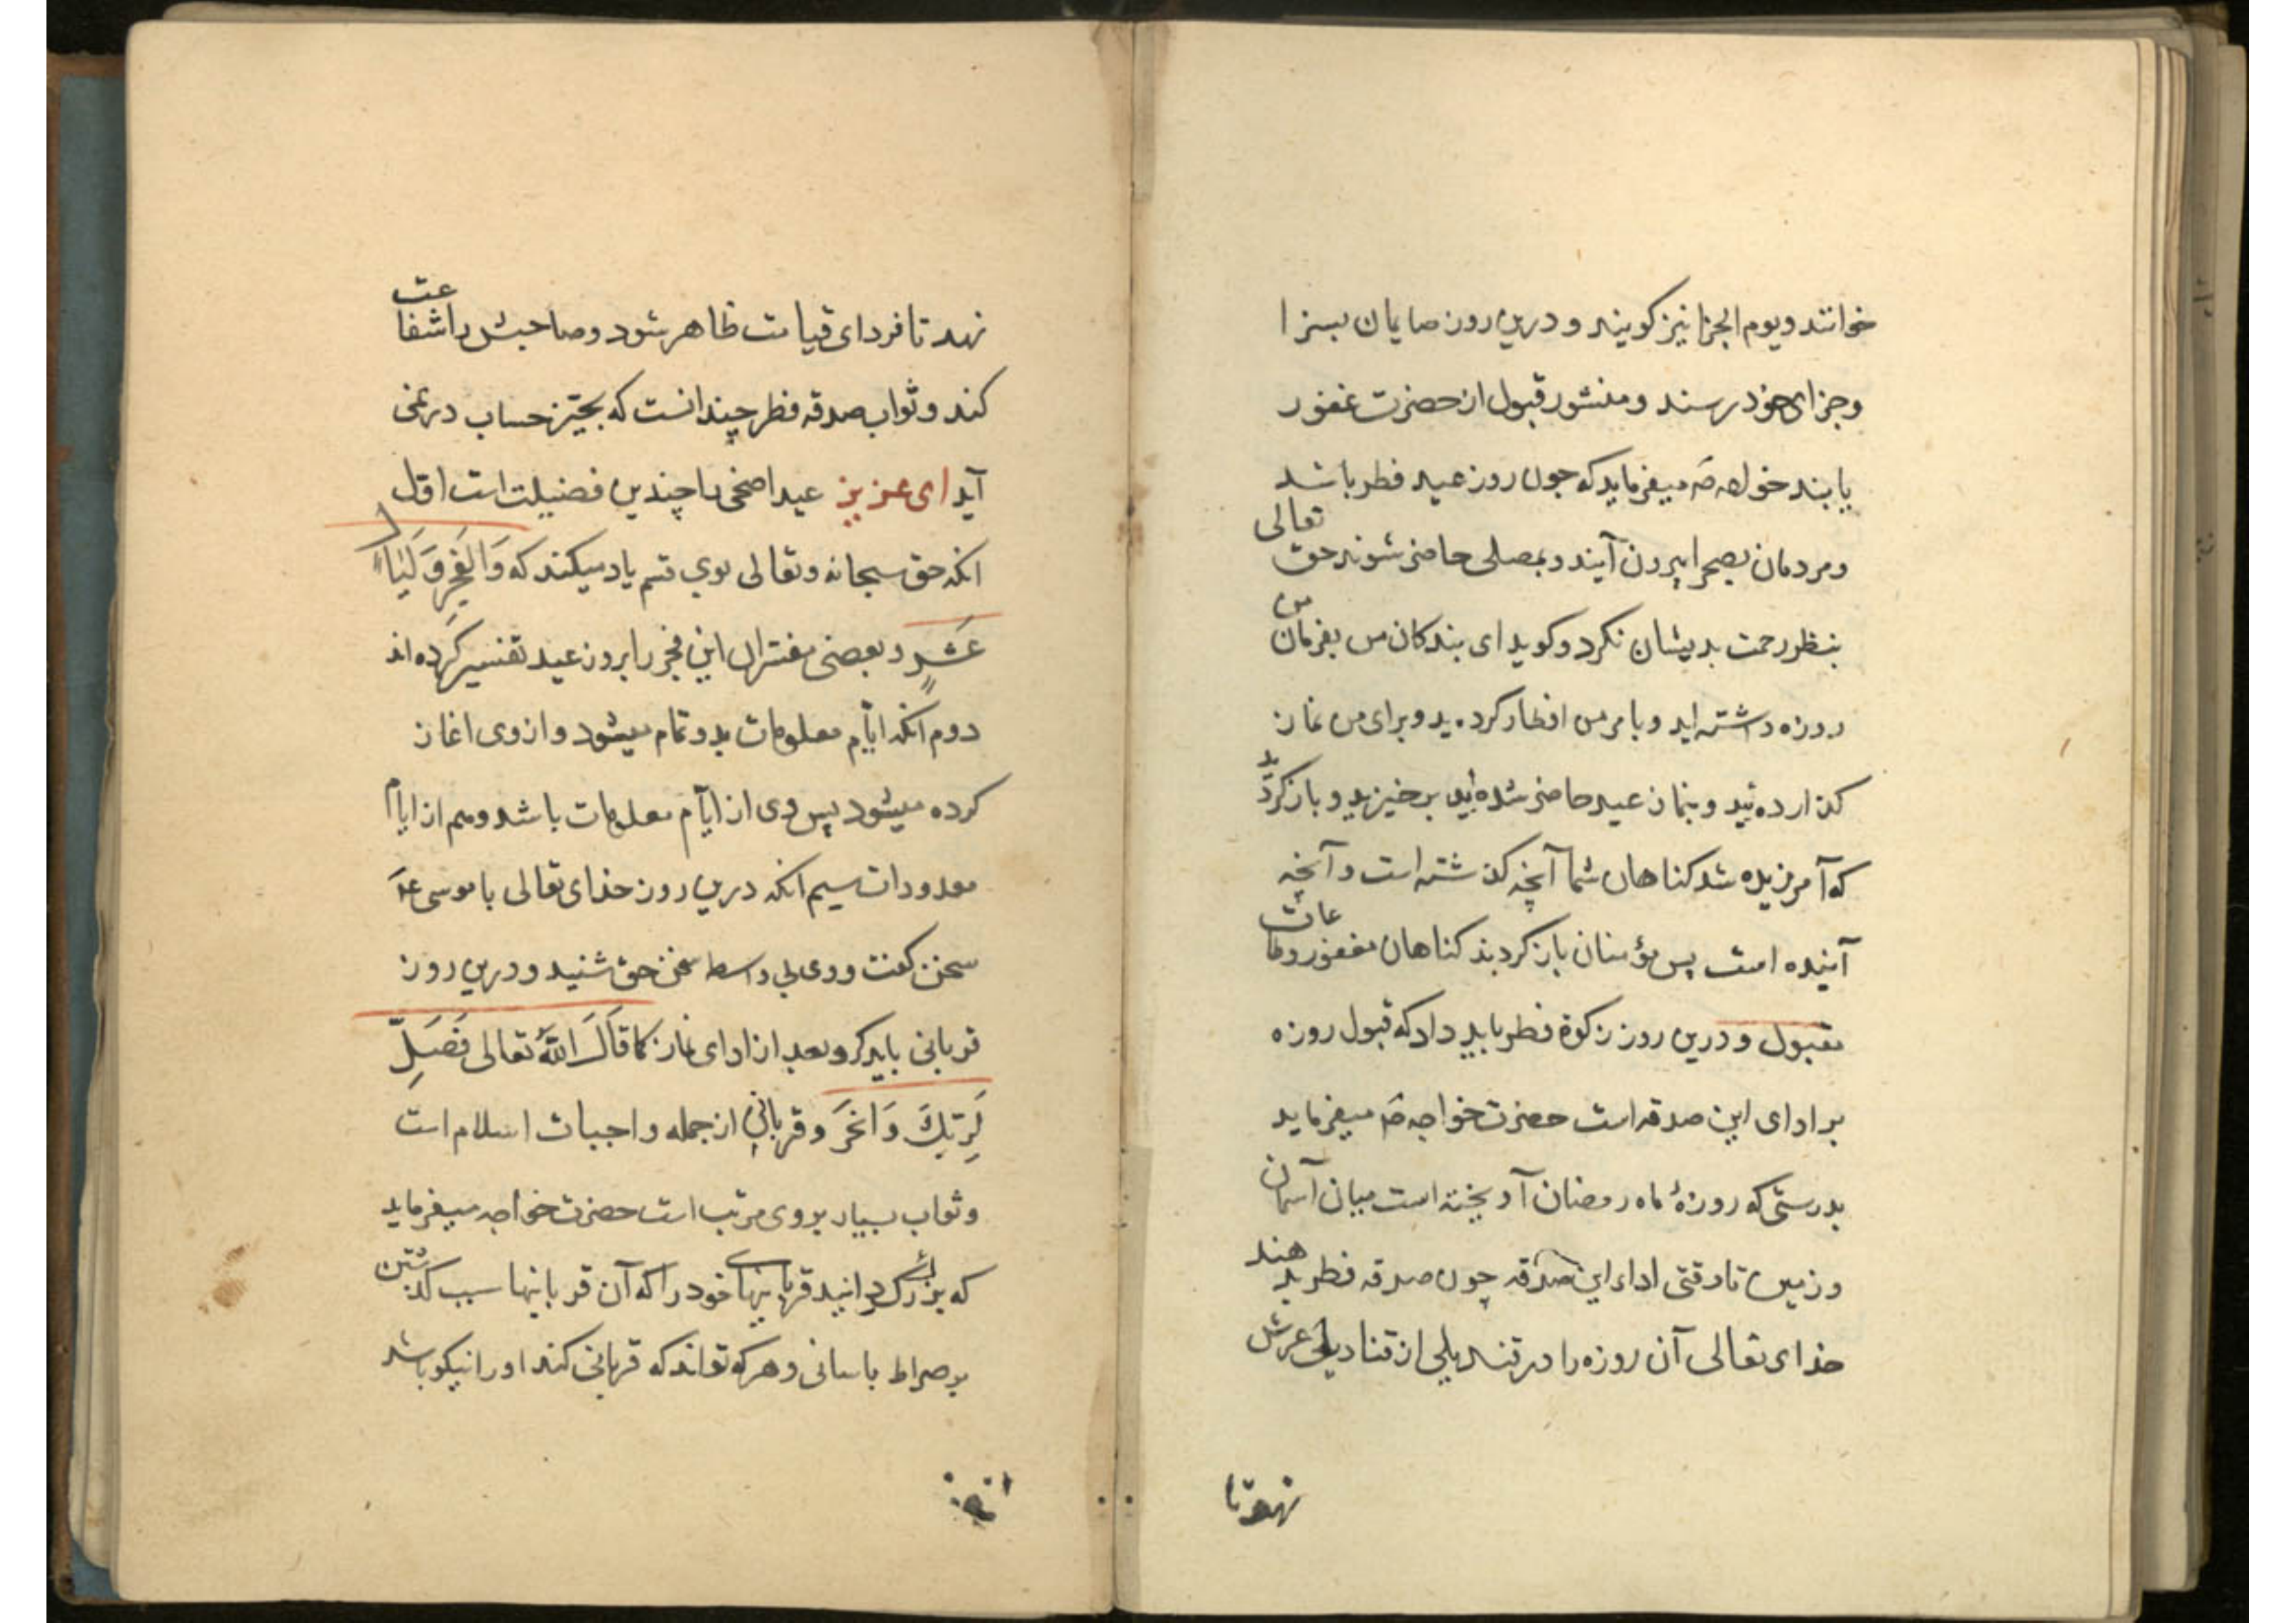 خوانند و یوم الجزا نیز کویند و درین روز صایمان بسزا
و جزای خود رسند و منشور قبول از حضرت غفور
یابند خواجه صَ میفرماید که چون روز عید فطر باشد
و مردمان بصحرا بیرون آیند و بمصلی حاضر شوند حق تعالی
بنظر رحمت بدیشان نکرد و کوید ای بندکان من بفرمان من
روزه داشته اید و بامر من افطار کرده ید و برای من نماز
کذارده ئید و بنماز عید حاضر شده ئید برخیزید و باز کردید
که آمرزیده شد کناهان شما آنچه کذشته است و آنچه
آینده است پس مؤمنان باز کردند کناهان مغفور و طاعات
مقبول و درین روز زکوة فطر باید داد که قبول روزه
بر ادای این صدقه است حضرت خواجه صَ میفرماید
بدرستی که روزهٔ ماه رمضان آویخته است میان آسمان
و زمین تا وقتی اداء این صدقه چون صدقه فطر بدهند
خدای تعالی آن روزه را در قندیلی از قنادیل عرش
نهد تا
نهد تا فردای قیامت ظاهر شود و صاحبش را شفاعت
کند و ثواب صدقه فطر چندانست که بحیّز حساب در نمی
آید ای عزیز عید اضحی را چندین فضیلت است اوّل
انکه حق سبحانه و تعالی بوی قسم یاد میکند که وَالفَجرِ وَ لَیَالٍ
عَشرٍ و بعضی مفسّران این فجر را بروز عید تفسیر کرده اند
دوم آنکه ایّام معلومات بدو تمام میشود و از وی اغاز
کرده میشود پس وی از ایّام معلومات باشد و هم از ایام
معدودات سیم انکه درین روز خدای تعالی با موسی عَم
سخن کفت و وی بی واسطه سخن حق شنید و درین روز
قربانی باید کرد بعد از ادای نماز کما قَالَ اللهُ تعالی فَصَلِّ
لِرَبِّكَ وَانحَر و قربانی از جمله واجبات اسلام است
و ثواب بسیار بروی مرتب است حضرت خواجه میفرماید
که بزرک دانید قربانیهای خود را که آن قربانیها سبب کذشتن
بر صراط باسانی و هر که تواند که قربانی کند او را نیکو باشد